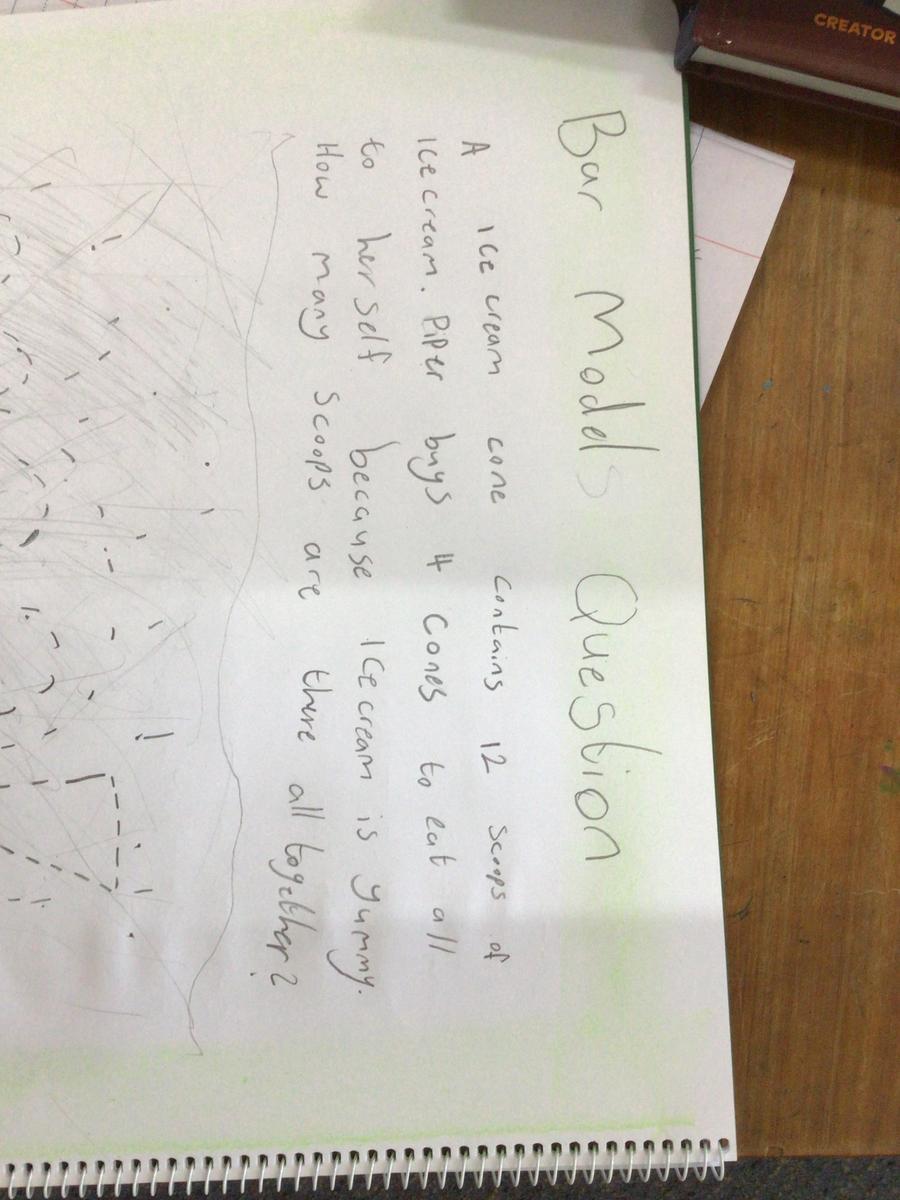 CREATOR
Bar Models Question
A ice cream cone contains 12 scoops of
Icecream. Piper buys 4 cones to eat all
to herself because Icecream is yummy.
How many scoops are there all together?